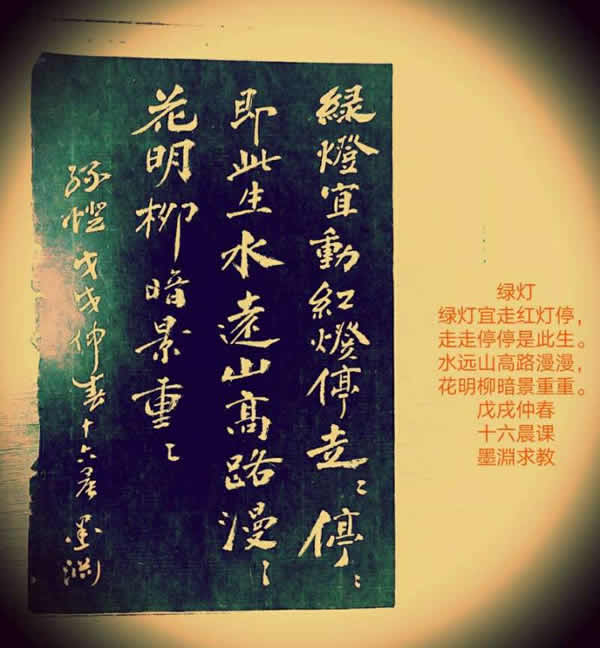 緑燈宜動紅燈停走〻停〻
即此生水遠山高路漫〻
花明柳暗景重〻
绿燈 戊戌仲春十六晨 墨渊
绿灯
绿灯宜走红灯停，
走走停停是此生。
水远山高路漫漫，
花明柳暗景重重。
戊戌仲春
十六晨课
墨淵求教